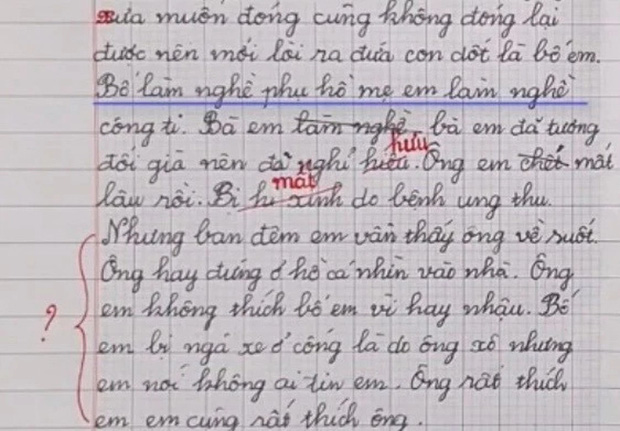 xưa muốn đóng cũng không đóng lại
được nên mới lòi ra đứa con dốt là bố em.
Bố làm nghề phụ hồ mẹ em làm nghề
công ti. Bà em làm nghề, bà em đã tương
đối già nên đã nghỉ hiêu. hưu Ông em chết mất
lâu rồi. Bị hi sinh mất do bệnh ung thư.
Nhưng ban đêm em vẫn thấy ông về suốt.
Ông hay đứng ở hồ cá nhìn vào nhà. Ông
em không thích bố em vì hay nhậu. Bố
? em bị ngã xe ở cổng là do ông xô nhưng
em nói không ai tin em. Ông rất thích
em em cũng rất thích ông.